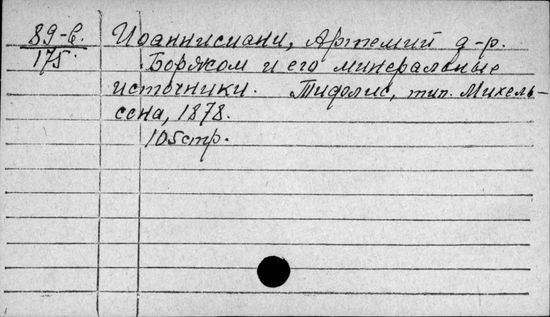 89-в. Иоаннисиани, Артемий д-р.
175. Боржом и его минеральные
источники. Тифлис, тип. Михель-
сона, 1878.
105 стр.